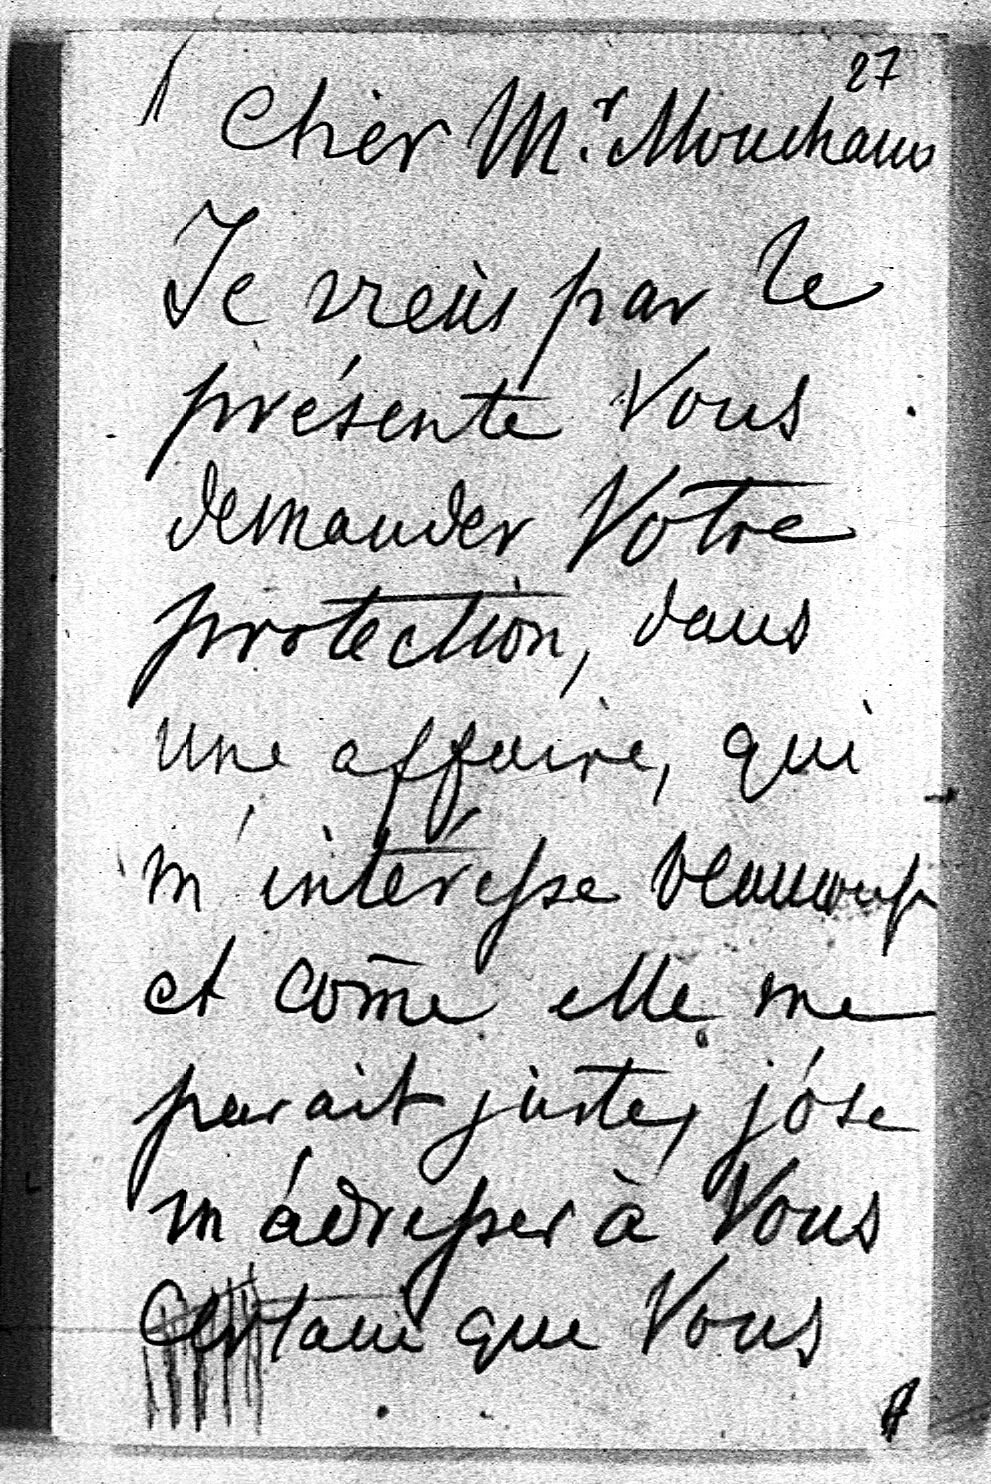 27
Cher Mr. Mouchaus
Je viens par le
présente Vous
demander Votre
protection, dans
une affaire, qui
m'intéresse beaucoup
et com̄e elle me
parait juste, j'ose
m'adresser à Vous
Certain que Vous